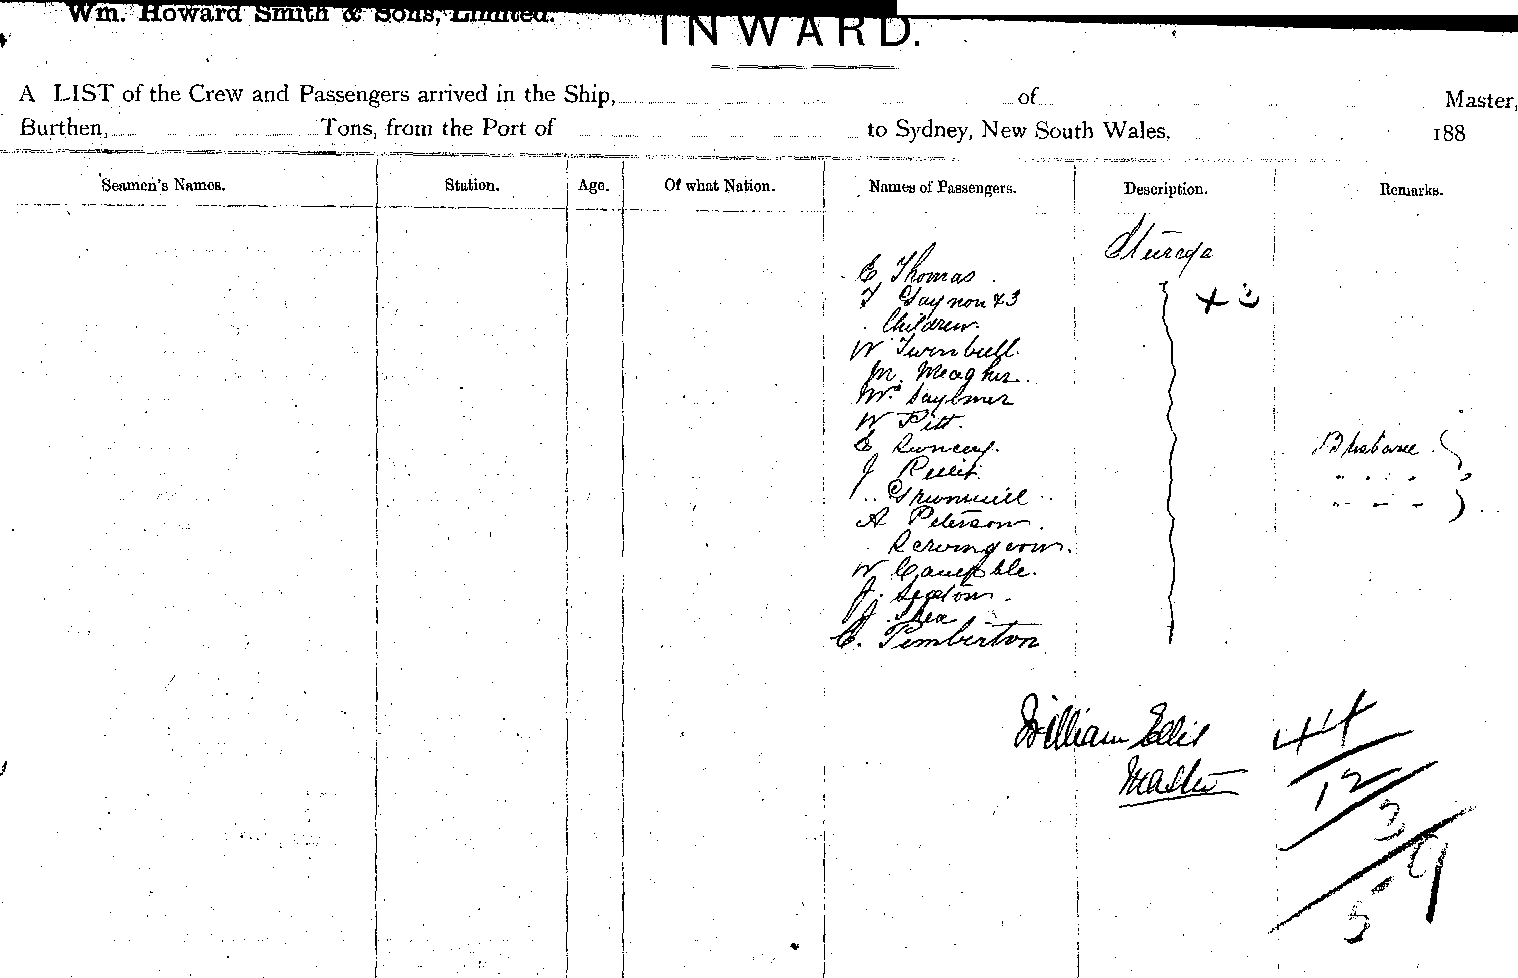 Wm. Howard Smith & Sons, Limited.
INWARD.
A LIST of the Crew and Passengers arrived in the Ship, of Master,
Burthen, Tons, from the Port of to Sydney, New South Wales, 188
Seamen's Names. Station. Age. Of what Nation. Names of Passengers. Description. Remarks.
E Thomas
Gaynon & 3 + 3
Children
W Turnbull
M. Meagher
Mrs
W Pitt.
E Brisbane
J
A Peterson
W
J. Sexton
J. Shea
C. Pemberton
William Ellis 44
Master 12
3
59